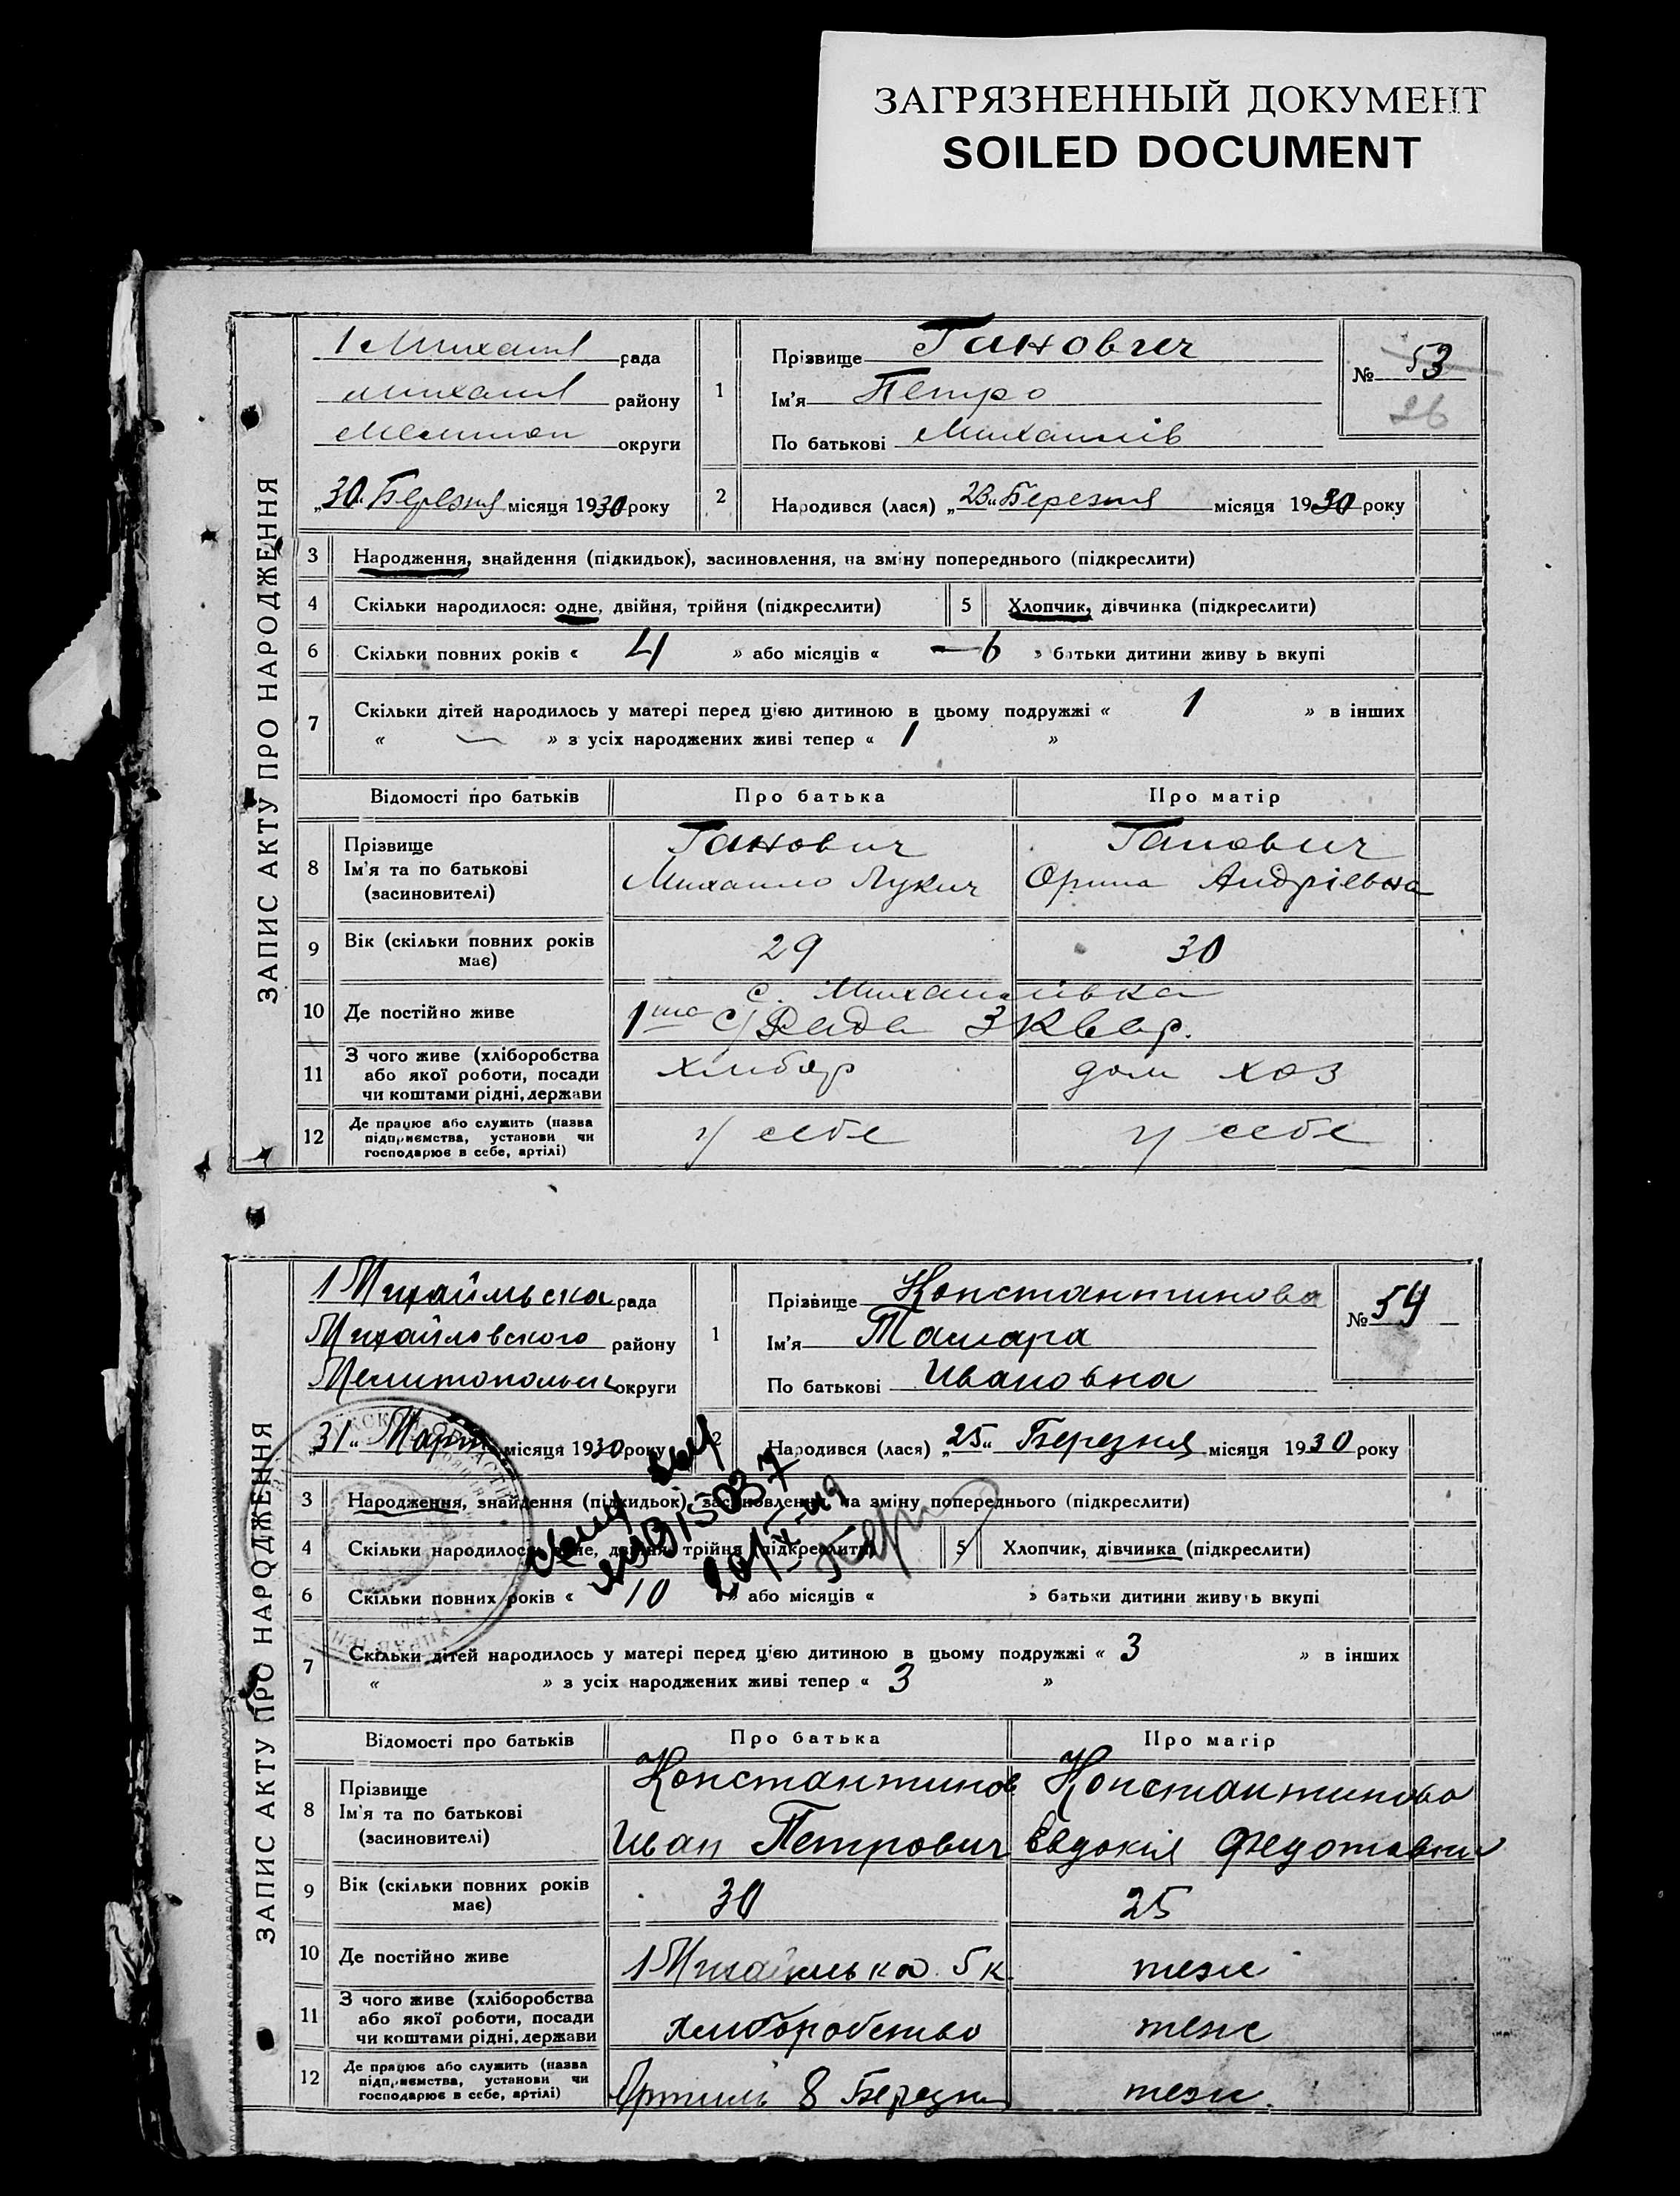 ЗАГРЯЗНЕННЫЙ ДОКУМЕНТ
SOILED DOCUMENT
ЗАПИС АКТУ ПРО НАРОДЖЕННЯ
1 Михайл рада
Михайл району
Мелитоп округи
„30“ Березня місяця 1930 року
1 Прізвище Ганович
Ім'я Петро
По батькові Михайлів
№ 53
26
2 Народився (лася) „23“ Березня місяця 1930 року
3 Народження, знайдення (підкидьок), засиновлення, на зміну попереднього (підкреслити)
4 Скільки народилося: одне, двійня, трійня (підкреслити) 5 Хлопчик, дівчинка (підкреслити)
6 Скільки повних років « 4 » або місяців « — 6 » батьки дитини живу ь вкупі
7 Скільки дітей народилось у матері перед цією дитиною в цьому подружжі « 1 » в інших
« — » з усіх народжених живі тепер « 1 »
Відомості про батьків Про батька Про матір
8 Прізвище Ім'я та по батькові (засиновителі)
Ганович Ганович
Михайло Лукич Орина Андріевна
9 Вік (скільки повних років має) 29 30
10 Де постійно живе с. Михайлівка
1ша с/Рада 3 Квар.
11 З чого живе (хліборобства або якої роботи, посади чи коштами рідні, держави хлібор дом хоз
12 Де працює або служить (назва підприємства, установи чи господарює в себе, артілі) у себе у себе
ЗАПИС АКТУ ПРО НАРОДЖЕННЯ
1 Михайльска рада
Михайловского району
Мелитопольск округи
„31“ Март місяця 1930 року
1 Прізвище Константинова
Ім'я Тамара
По батькові Ивановна
№ 54
2 Народився (лася) „25“ Березня місяця 1930 року
3 Народження, знайдення (підкидьок), засиновлення, на зміну попереднього (підкреслити)
4 Скільки народилося: одне, двійня, трійня (підкреслити) 5 Хлопчик, дівчинка (підкреслити)
6 Скільки повних років « 10 » або місяців « » батьки дитини живу ь вкупі
7 Скільки дітей народилось у матері перед цією дитиною в цьому подружжі « 3 » в інших
« » з усіх народжених живі тепер « 3 »
Відомості про батьків Про батька Про матір
8 Прізвище Ім'я та по батькові (засиновителі)
Константинов Константинова
Иван Петрович Евдокія Федотовна
9 Вік (скільки повних років має) 30 25
10 Де постійно живе 1 Михайлька 5 к. теж
11 З чого живе (хліборобства або якої роботи, посади чи коштами рідні, держави хліборобство теж
12 Де працює або служить (назва підприємства, установи чи господарює в себе, артілі) Артиль 8 Березня теж